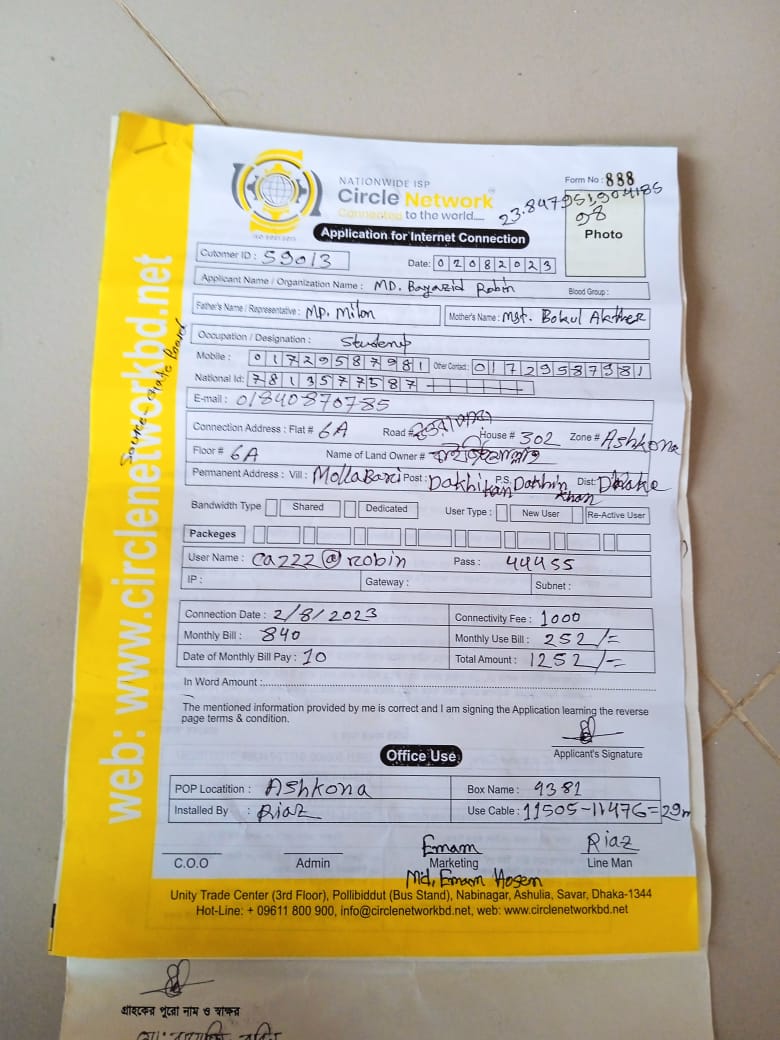 NATIONWIDE ISP
Circle Network
Connected to the world....
ISO 9001:2015
Form No : 888
23.847951,90.4185
98
Photo
Application for Internet Connection
Cutomer ID : 59013
Date: 02082023
Applicant Name / Organization Name : MD. Bayazid Robin Blood Group :
Father's Name / Representative : MD. Milon Mother's Name : Mst. Bokul Akther
Occupation / Designation : Student
Mobile : 01729587981 Other Contact : 01729587981
National Id: 7813577587
E-mail : 01840870785
Connection Address : Flat # 6A Road # House # 302 Zone # Ashkona
Floor # 6A Name of Land Owner #
Permanent Address : Vill : MollaBari Post : Dakhikan P.S. Dakhin khan Dist: Dhaka
Bandwidth Type Shared Dedicated User Type : New User Re-Active User
Packeges
User Name : Ca222@robin Pass : 44455
IP : Gateway : Subnet :
Connection Date : 2/8/2023 Connectivity Fee : 1000
Monthly Bill : 840 Monthly Use Bill : 252/=
Date of Monthly Bill Pay : 10 Total Amount : 1252/=
In Word Amount :
The mentioned information provided by me is correct and I am signing the Application learning the reverse
page terms & condition.
Applicant's Signature
Office Use
POP Locatition : Ashkona Box Name : 9381
Installed By : Riaz Use Cable : 11505-11476=29m
Emam Riaz
C.O.O Admin Marketing Line Man
Md. Emam Hosen
Unity Trade Center (3rd Floor), Pollibiddut (Bus Stand), Nabinagar, Ashulia, Savar, Dhaka-1344
Hot-Line: + 09611 800 900, info@circlenetworkbd.net, web: www.circlenetworkbd.net
web: www.circlenetworkbd.net
গ্রাহকের পুরো নাম ও স্বাক্ষর